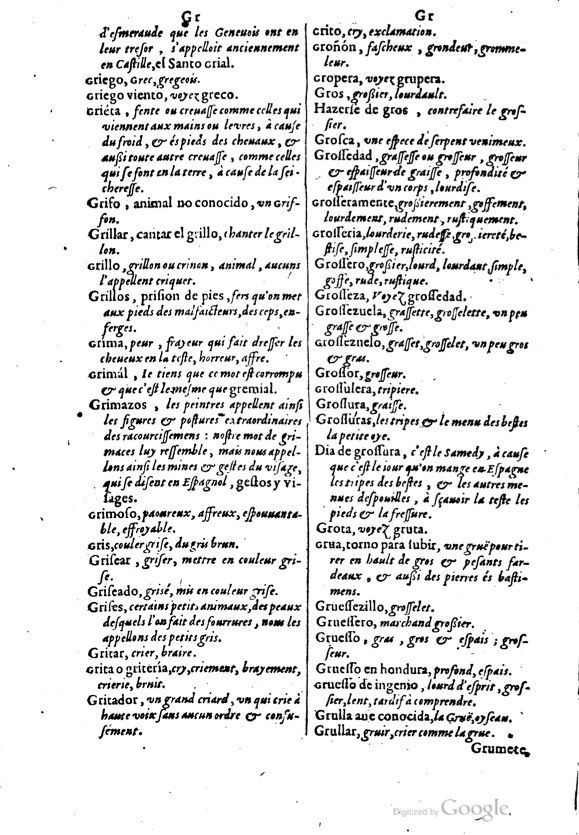 Gr
d'esmeraude que les Geneuois ont en
leur tresor , s'appelloit anciennement
en Castille, el Santo grial.
Griego, Grec, gregeois.
Griego viento, voyez greco.
Griéta , fente ou creuasse comme celles qui
viennent aux mains ou leures , à cause
du froid , & és pieds des cheuaux , &
aussi toute autre creuasse , comme celles
qui se font en la terre , à cause de la sei-
cheresse.
Grifo , animal no conocido , un Grif-
fon.
Grillar, cantar el grillo, chanter le gril-
lon.
Grillo , grillon ou crinon , animal , aucuns
l'appellent criquet.
Grillos , prision de pies , fers qu'on met
aux pieds des malfaicteurs, des ceps, en-
ferges.
Grima, peur , frayeur qui fait dresser les
cheueux en la teste, horreur, affre.
Grimál , Ie tiens que ce mot est corrompu
& que c'est le mesme que gremial.
Grimazos , les peintres appellent ainsi
les figures & postures extraordinaires
des racourcissemens : nostre mot de gri-
maces luy ressemble , mais nous appel-
lons ainsi les mines & gestes du visage,
qui se disent en Espagnol , gestos y vi-
sages.
Grimoso, paoureux, affreux, espouuanta-
ble, effroyable.
Gris, couler grise, du gris brun.
Grisear , griser, mettre en couleur gri-
se.
Griseado, grisé, mis en couleur grise.
Grises, certains petits animaux, des peaux
desquels l'on fait des fourrures , nous les
appellons des petits gris.
Gritar, crier, braire.
Grita o griteria, cry, criement, brayement,
crierie, bruit.
Gritador , un grand criard , un qui crie à
haute voix sans aucun ordre & confu-
sément.
Gr
Grito, cry, exclamation.
Groñón, fascheux , grondeur, gromme-
leur.
Gropera, voyez grupera.
Gros , grossier, lourdault.
Hazerse de gros , contrefaire le gros-
sier.
Grosca, une espece de serpent venimeux.
Grossedad, grassesse ou grosseur , grosseur
& espaisseur de graisse , profondité &
espaisseur d'un corps, lourdise.
Grosseramente, grossierement, goffement,
lourdement, rudement, rustiquement.
Grosseria, lourderie, rudesse, grossiereté, be-
stise, simplesse, rusticité.
Grossero, grossier, lourd, lourdaut, simple,
goffe, rude, rustique.
Grosseza, Voyez grossedad.
Grossezuela, grassette, grosselette, un peu
grasse & grosse.
Grossezuelo, grasset, grosselet, un peu gros
& gras.
Grossor, grosseur.
Grossulera, tripiere.
Grossura, graisse.
Grossuras, les tripes & le menu des bestes
la petite oye.
Dia de grossura , c'est le Samedy , à cause
que c'est le iour qu'on mange en Espagne
les tripes des bestes , & les autres me-
nues despouilles , à sçauoir la teste les
pieds & la fressure.
Grota, voyez gruta.
Grua, torno para subir, une gruë pour ti-
rer en hault de gros & pesants far-
deaux , & aussi des pierres és basti-
mens.
Gruessezillo, grosselet.
Gruessero, marchand grossier.
Gruesso , gras , gros & espais ; gros-
seur.
Gruesso en hondura, profond, espais.
Gruesso de ingenio , lourd d'esprit, gros-
sier, lent, tardif à comprendre.
Grulla aue conocida, la Gruë, oyseau.
Grullar, gruir, crier comme la grue.
Grumete,
Digitized by Google